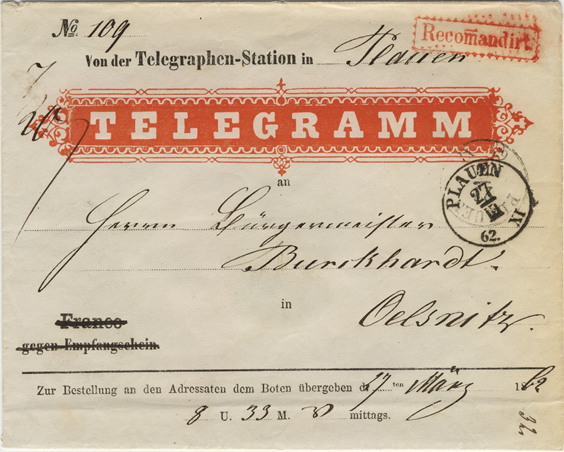 No 109
Recomandirt
Von der Telegraphen-Station in Plauen
TELEGRAMM
an
PLAUEN
27
III
62.
IV
Herrn Bürgermeister
Burckhardt.
in
Oelsnitz.
Franco
gegen Empfangschein
Zur Bestellung an den Adressaten dem Boten übergeben d 27 ten März 1862
8 U. 33 M. V mittags.